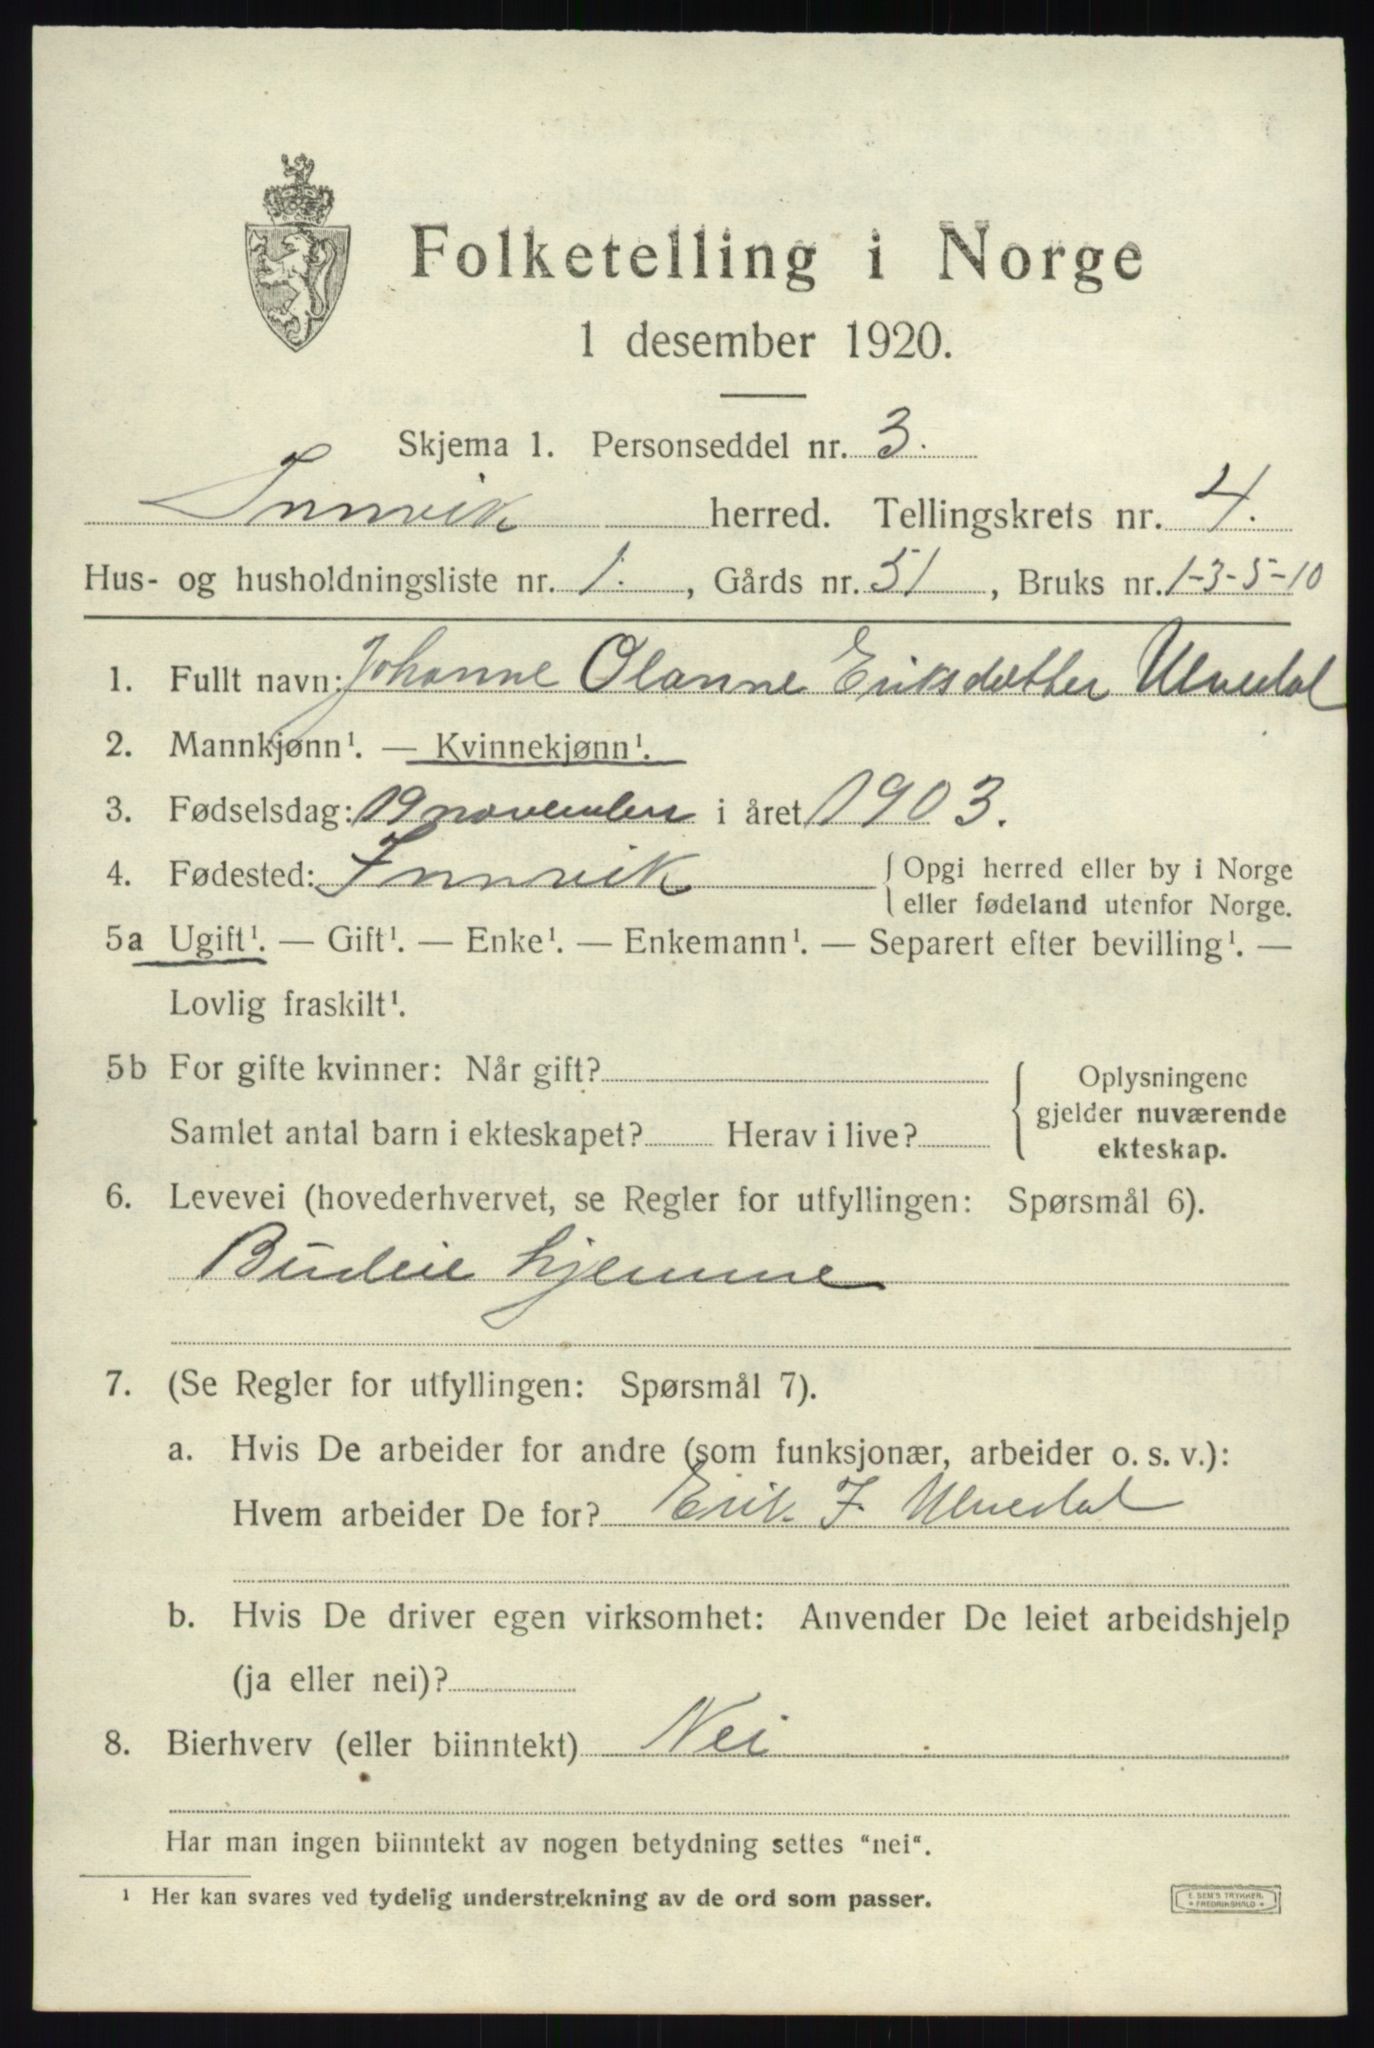 Folketelling i Norge
1 desember 1920.
Skjema 1. Personseddel nr. 3.
Innvik herred. Tellingskrets nr. 4.
Hus- og husholdningsliste nr. 1. , Gårds nr. 51 , Bruks nr. 1-3-5-10
1. Fullt navn: Johanne Olanne Eriksdotter Ulvedal
2. Mannkjønn¹. — Kvinnekjønn¹.
3. Fødselsdag: 19 november i året 1903.
4. Fødested: Innvik { Opgi herred eller by i Norge
eller fødeland utenfor Norge.
5a Ugift¹. — Gift¹. — Enke¹. — Enkemann¹. — Separert efter bevilling¹. —
Lovlig fraskilt¹.
5b For gifte kvinner: Når gift?
Samlet antal barn i ekteskapet? Herav i live?
{ Oplysningene
gjelder nuværende
ekteskap.
6. Levevei (hovederhvervet, se Regler for utfyllingen: Spørsmål 6).
Budeie hjemme
7. (Se Regler for utfyllingen: Spørsmål 7).
a. Hvis De arbeider for andre (som funksjonær, arbeider o. s. v.):
Hvem arbeider De for? Erik F. Ulvedal
b. Hvis De driver egen virksomhet: Anvender De leiet arbeidshjelp
(ja eller nei)?
8. Bierhverv (eller biinntekt) Nei
Har man ingen biinntekt av nogen betydning settes "nei".
¹ Her kan svares ved tydelig understrekning av de ord som passer.
E. SEM'S TRYKKERI
* FREDRIKSHALD *